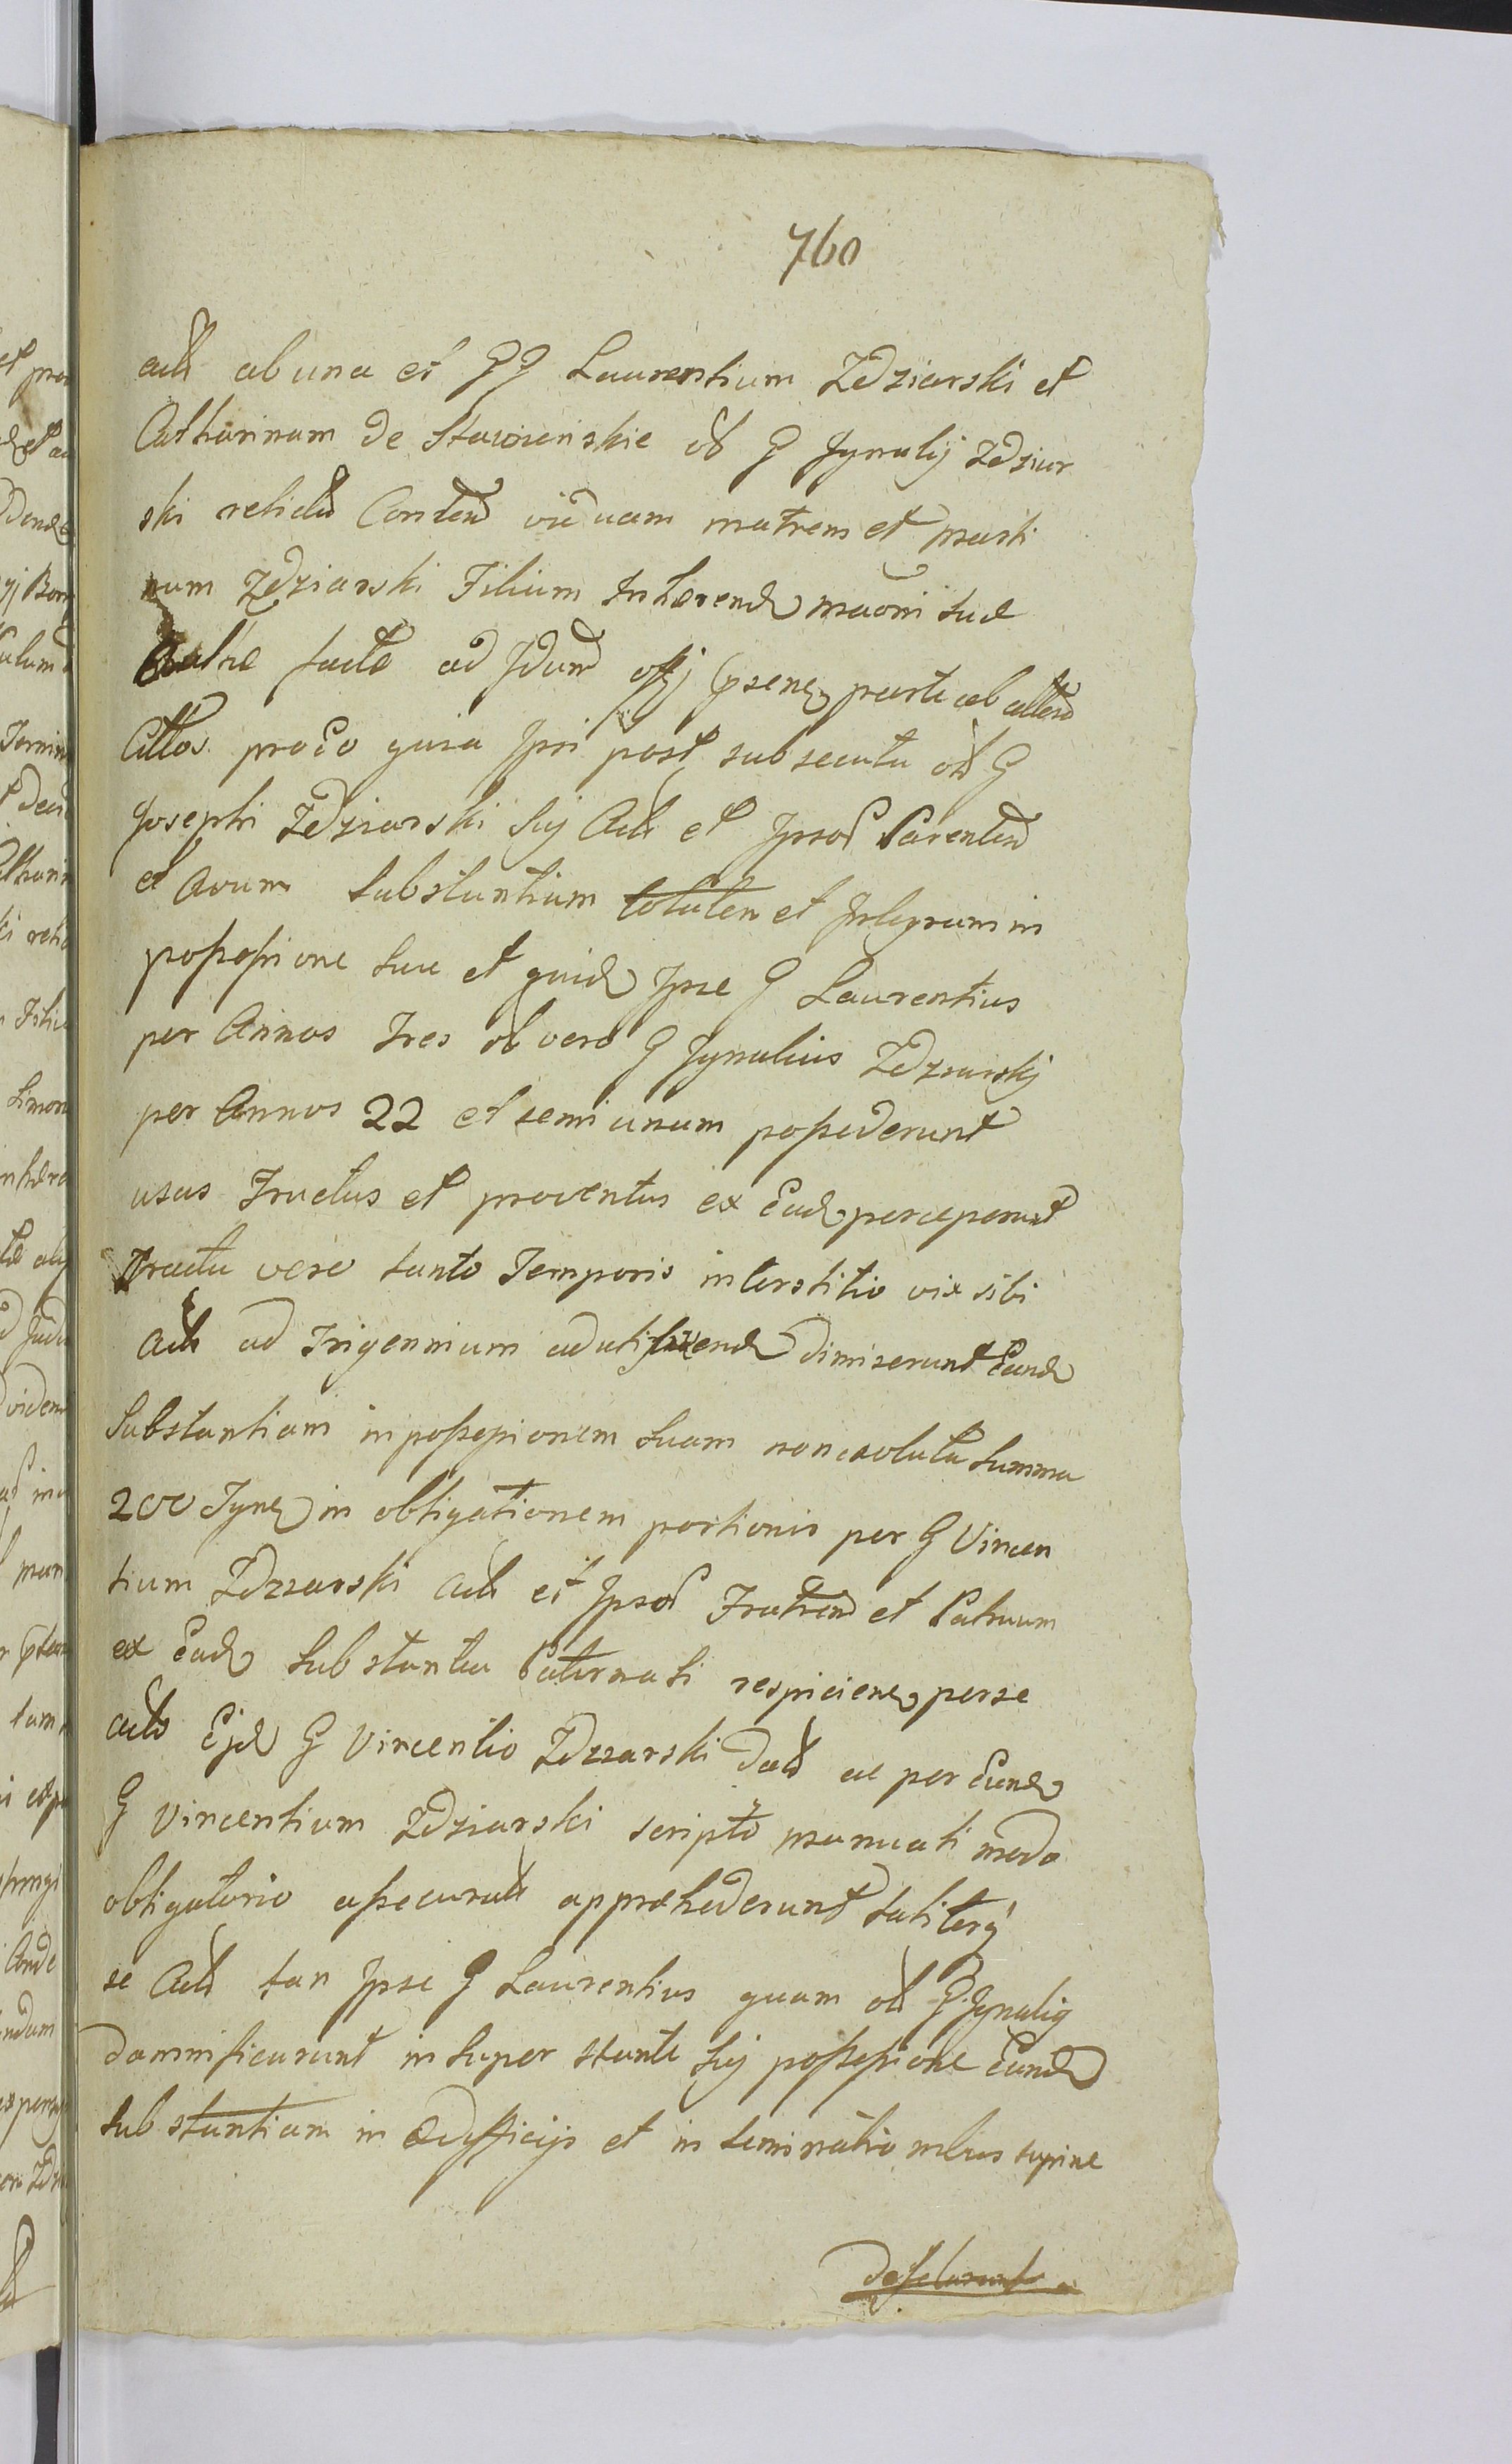 760
ab una et GG Laurentium Zdziarski et
Catharinam de Stawieńskie ol G Ignatij Zdziar
ski relictã Consten viduam matrem et marti
num Zdziarski Filium Inhærend maõni suæ
factæ ad Idum offij psene parte ab altera
Cittõs proeo quia Ipsi post subsecuta ol G
Josephi Zdziarski Sui Acts et Ipsor Parentem
et Avum Substantiam totalem et Integram in
possessione sua et quid Ipse G Laurentius
per Annos Tres ol vero G Ignatius Zdziarskij
per Annos 22 et semi unum possederunt
usus Fructus et proventus ex Ead perceperunt
Tractu vero tanto Temporis interstitio vix sibi
Acts ad Trigennium aduti dimiserunt Eand
Substantiam in possessionem suam non exoluta Summa
200 Tynf in obligationem portionis per G Vincen
tium Zdziarski Acts et Ipsor Fratrem et Patruum
ex Ead Substantia Paterna si respiciene perse
acto Ejd G Vincentio Zdziarski dad ac per Eund
G Vincentium Zdziarski scripto manuali modo
obligatorio assecurat appræhederunt taliterq
se Acts tan Ipse G Laurentius quam ol G Ignatij
damnificarunt in super stante Sui possessione Eand
substantiam in Ædifficijs et in seminationibus supine